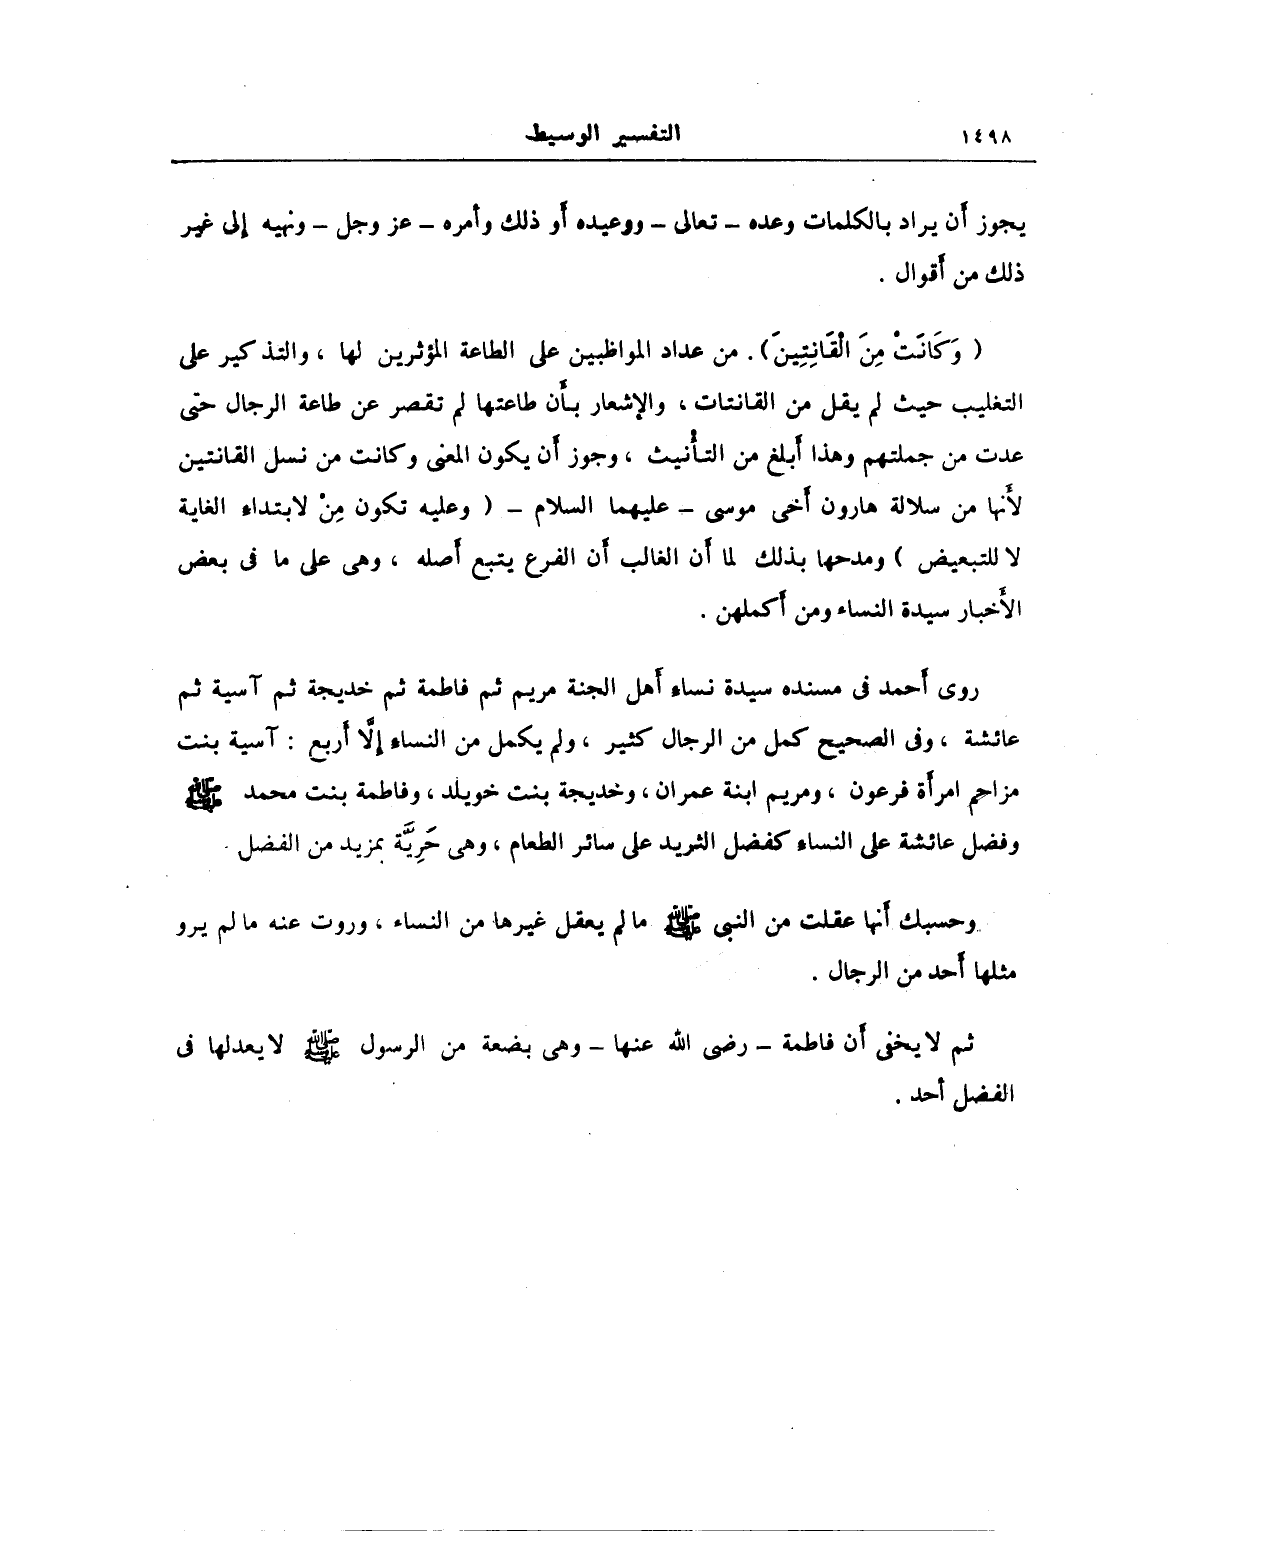 ١٤٩٨ التفسير الوسيط
يجوز أَن يراد بالكلمات وعده – تعالى – ووعيده أَو ذلك وأمره – عز وجل – ونهيه إلى غير
ذلك من أَقوال .
( وَكَانَتْ مِنَ الْقَانِتِينَ) . من عداد المواظبين على الطاعة المؤثرين لها ، والتذكير على
التغليب حيث لم يقل من القانتات ، والإشعار بأَن طاعتها لم تقصر عن طاعة الرجال حتى
عدت من جملتهم وهذا أَبلغ من التأْنيث ، وجوز أَن يكون المعنى وكانت من نسل القانتين
لأَنها من سلالة هارون أَخى موسى – عليهما السلام – ( وعليه تكون مِنْ لابتداء الغاية
لا للتبعيض ) ومدحها بذلك لما أَن الغالب أَن الفرع يتبع أَصله ، وهى على ما فى بعض
الأَخبار سيدة النساء ومن أَكملهن .
روى أَحمد فى مسنده سيدة نساء أَهل الجنة مريم ثم فاطمة ثم خديجة ثم آسية ثم
عائشة ، وفى الصحيح كمل من الرجال كثير ، ولم يكمل من النساء إلَّا أَربع : آسية بنت
مزاحم امرأَة فرعون ، ومريم ابنة عمران ، وخديجة بنت خويلد ، وفاطمة بنت محمد ﷺ
وفضل عائشة على النساء كفضل الثريد على سائر الطعام ، وهى حَرِيَّة بمزيد من الفضل .
وحسبك أَنها عقلت من النبى ﷺ ما لم يعقل غيرها من النساء ، وروت عنه ما لم يرو
مثلها أَحد من الرجال .
ثم لا يخفى أَن فاطمة – رضى الله عنها – وهى بضعة من الرسول ﷺ لا يعدلها فى
الفضل أَحد .